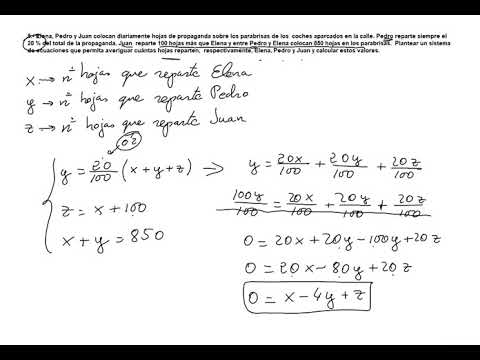 5.- Elena, Pedro y Juan colocan diariamente hojas de propaganda sobre los parabrisas de los coches aparcados en la calle. Pedro reparte siempre el
20 % del total de la propaganda, Juan reparte 100 hojas más que Elena y entre Pedro y Elena colocan 850 hojas en los parabrisas. Plantear un sistema
de ecuaciones que permita averiguar cuántas hojas reparten, respectivamente, Elena, Pedro y Juan y calcular estos valores.
x → nº hojas que reparte Elena
y → nº hojas que reparte Pedro
z → nº hojas que reparte Juan
0'2
y = 20/100 (x + y + z) ⇒ y = 20x/100 + 20y/100 + 20z/100
100y/100 = 20x/100 + 20y/100 + 20z/100
z = x + 100
x + y = 850
0 = 20x + 20y - 100y + 20z
0 = 20x - 80y + 20z
0 = x - 4y + z